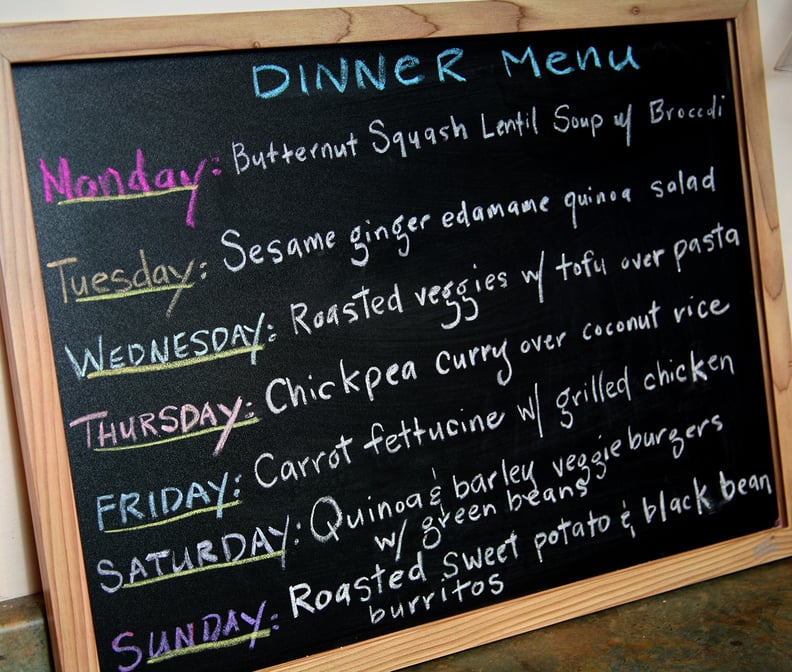 DINNER Menu
Monday: Butternut Squash Lentil Soup w/ Broccoli
Tuesday: Sesame ginger edamame quinoa salad
WEDNESDAY: Roasted veggies w/ tofu over pasta
THURSDAY: Chickpea curry over coconut rice
FRIDAY: Carrot fettucine w/ grilled chicken
SATURDAY: Quinoa & barley veggie burgers
w/ green beans
SUNDAY: Roasted sweet potato & black bean
burritos